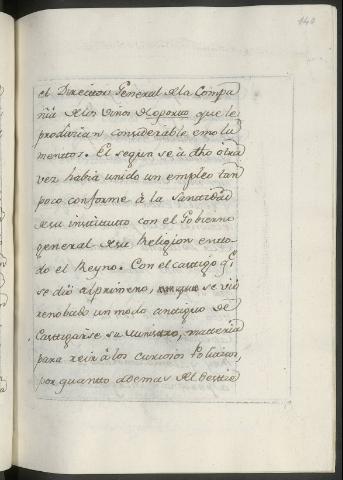 140
el Director General de la Compa
ñia de los Vinos de oporto que le
producian considerable emolu
mentos. El segun se à dho otra
vez habia unido un empleo tan
poco conforme à la Santidad
de su institutto con el Gobierno
general de su Religion en tto
do el Reyno. Con el castigo qe.
se dió al primero, se vió
renobado un modo antiguo de
Castigarse su Ministro, materia
para reir à los curiosos Politicos,
por quantto ademas del destie